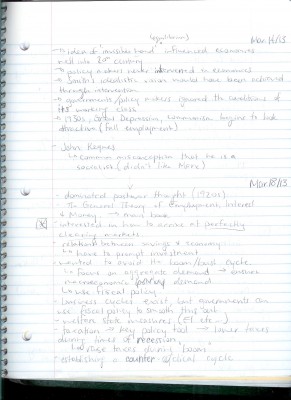 (equilibrium)
Mar 16/13
→ idea of "invisible hand" influenced economics
well into 20th century
→ policy makers never intervened in economies
→ Smith's idealistic vision might have been achieved
through intervention
→ governments/policy makers ignored the conditions of
its working class
→ 1930s, Great Depression, Communism begins to look
attractive (full employment)
- John Keynes
↳ common misconception that he is a
socialist (didn't like Marx)
Mar 18/13
- dominated postwar thought (1920s)
- The General Theory of Employment, Interest
& Money → main book
- interested in how to arrive at perfectly
clearing markets
- relations between savings & economy
↳ have to prompt investment
- wanted to avoid the boom/bust cycle
↳ Focus on aggregate demand →
macroeconomic demand
↳ use fiscal policy
- business cycles exist, but governments can
use fiscal policy to smooth this out
- welfare state measures (EI etc.)
- taxation → key policy tool → lower taxes
during times of recession,
↳ raise taxes during "boom"
- establishing a counter-cyclical cycle